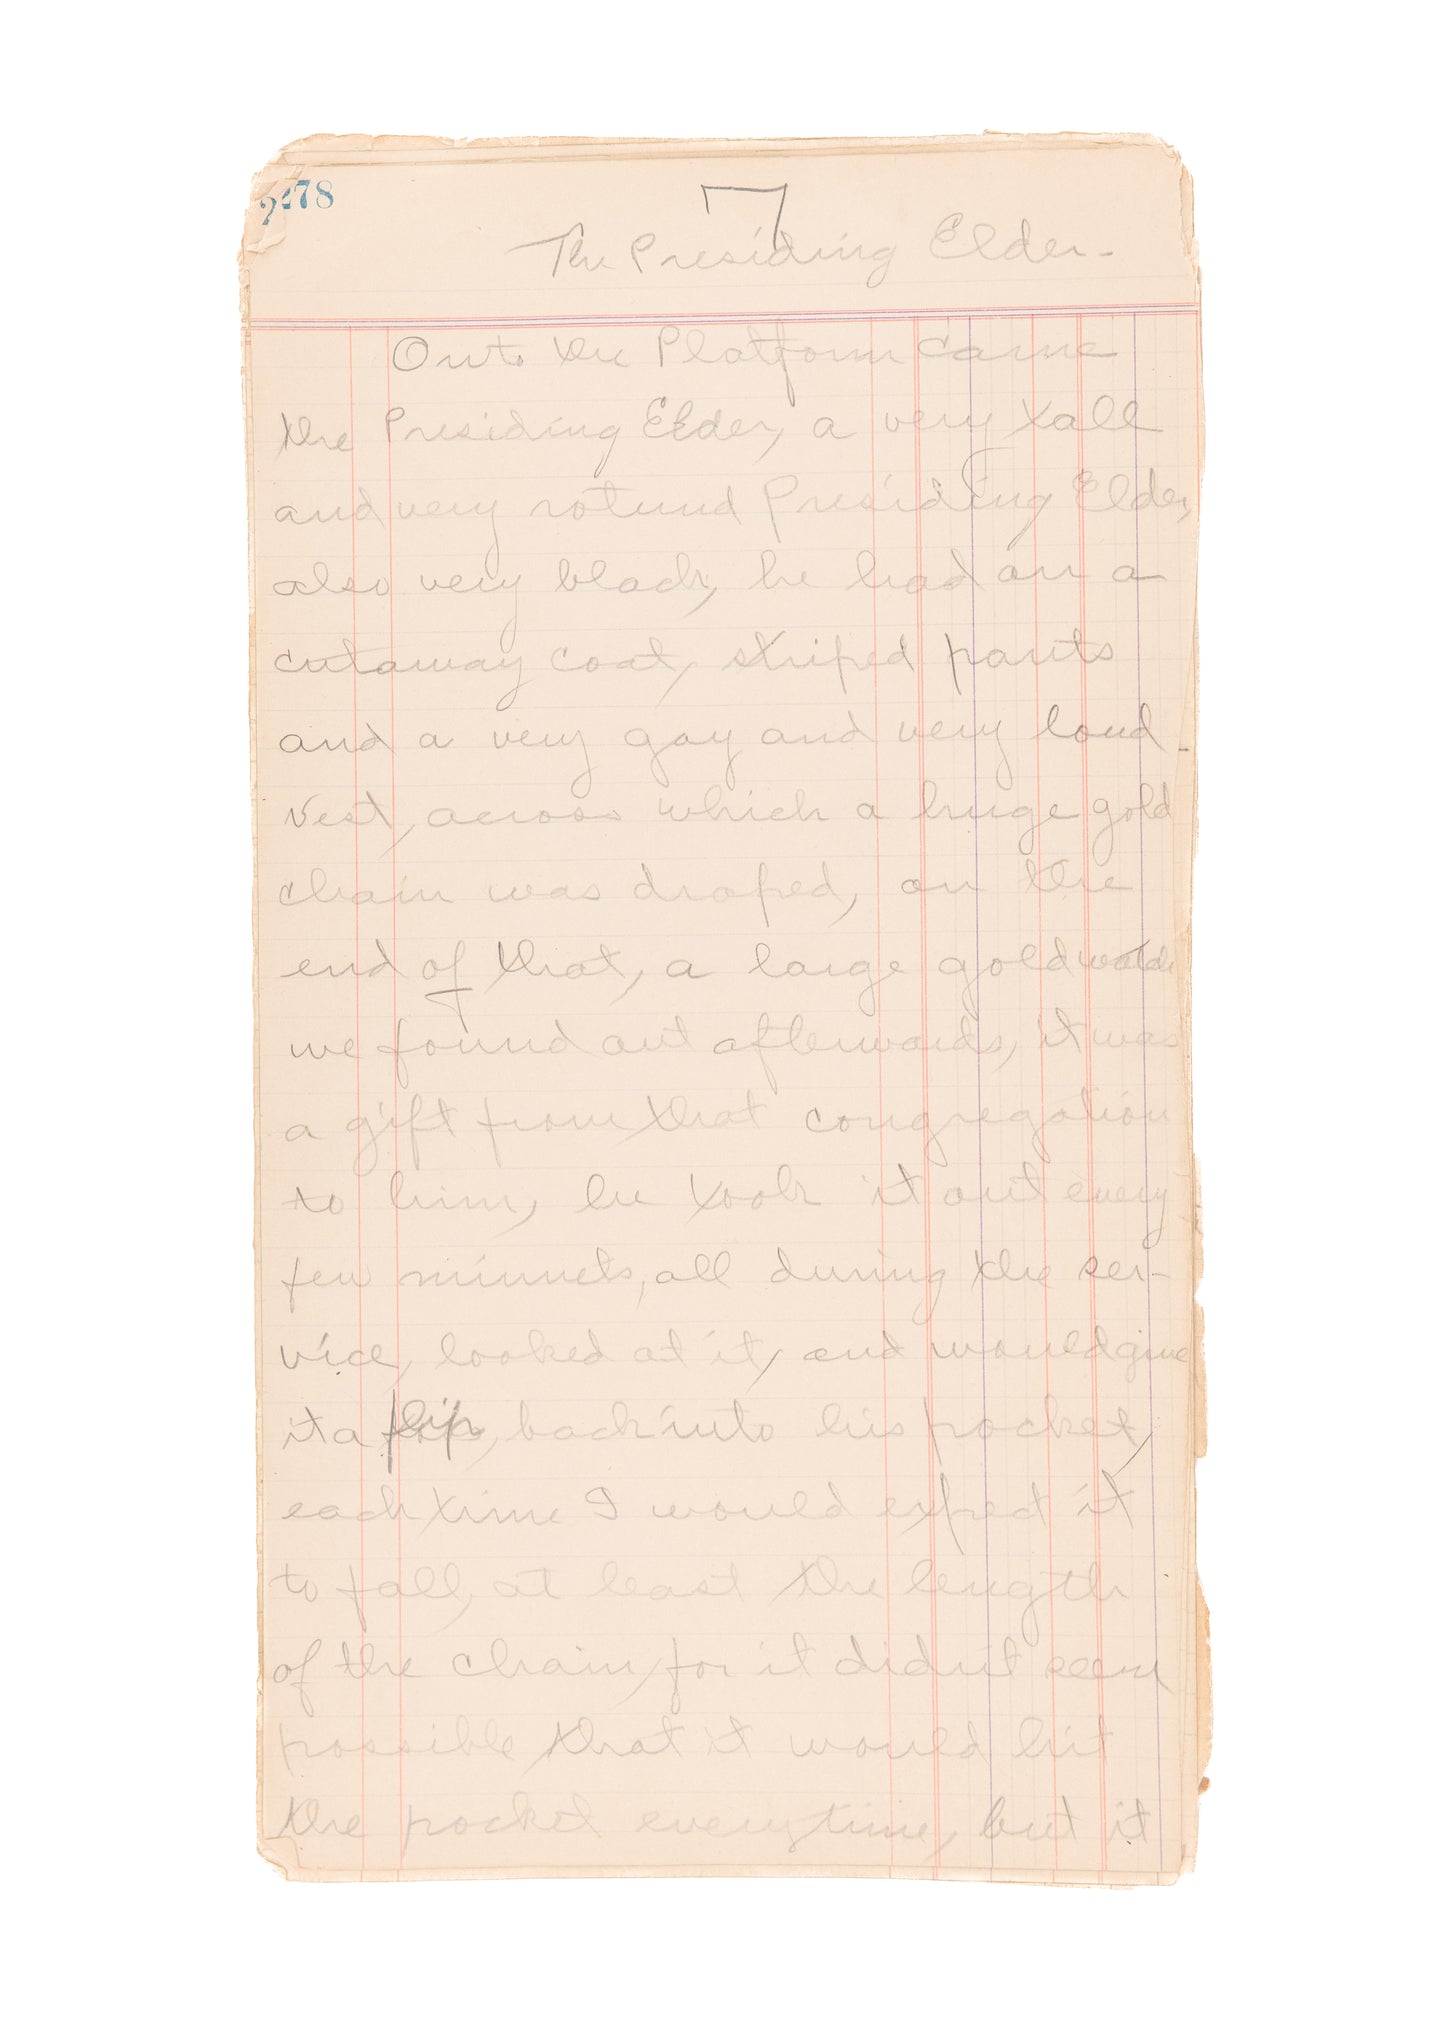 278
7
The Presiding Elder-
Onto the Platform came
the Presiding Elder, a very tall
and very rotund Presiding Elder,
also very black, he had on a
cutaway coat, striped pants
and a very gay and very loud-
vest, across which a huge gold
chain was draped, on the
end of that, a large gold watch
we found out afterwards, it was
a gift from that congregation
to him, he took it out every
few minnets, all during the ser-
vice, looked at it, and would give
it a flip, back into his pocket,
each time I would expect it
to fall, at least the length
of the chain, for it didn't seem
possible that it would hit
the pocket everytime, but it